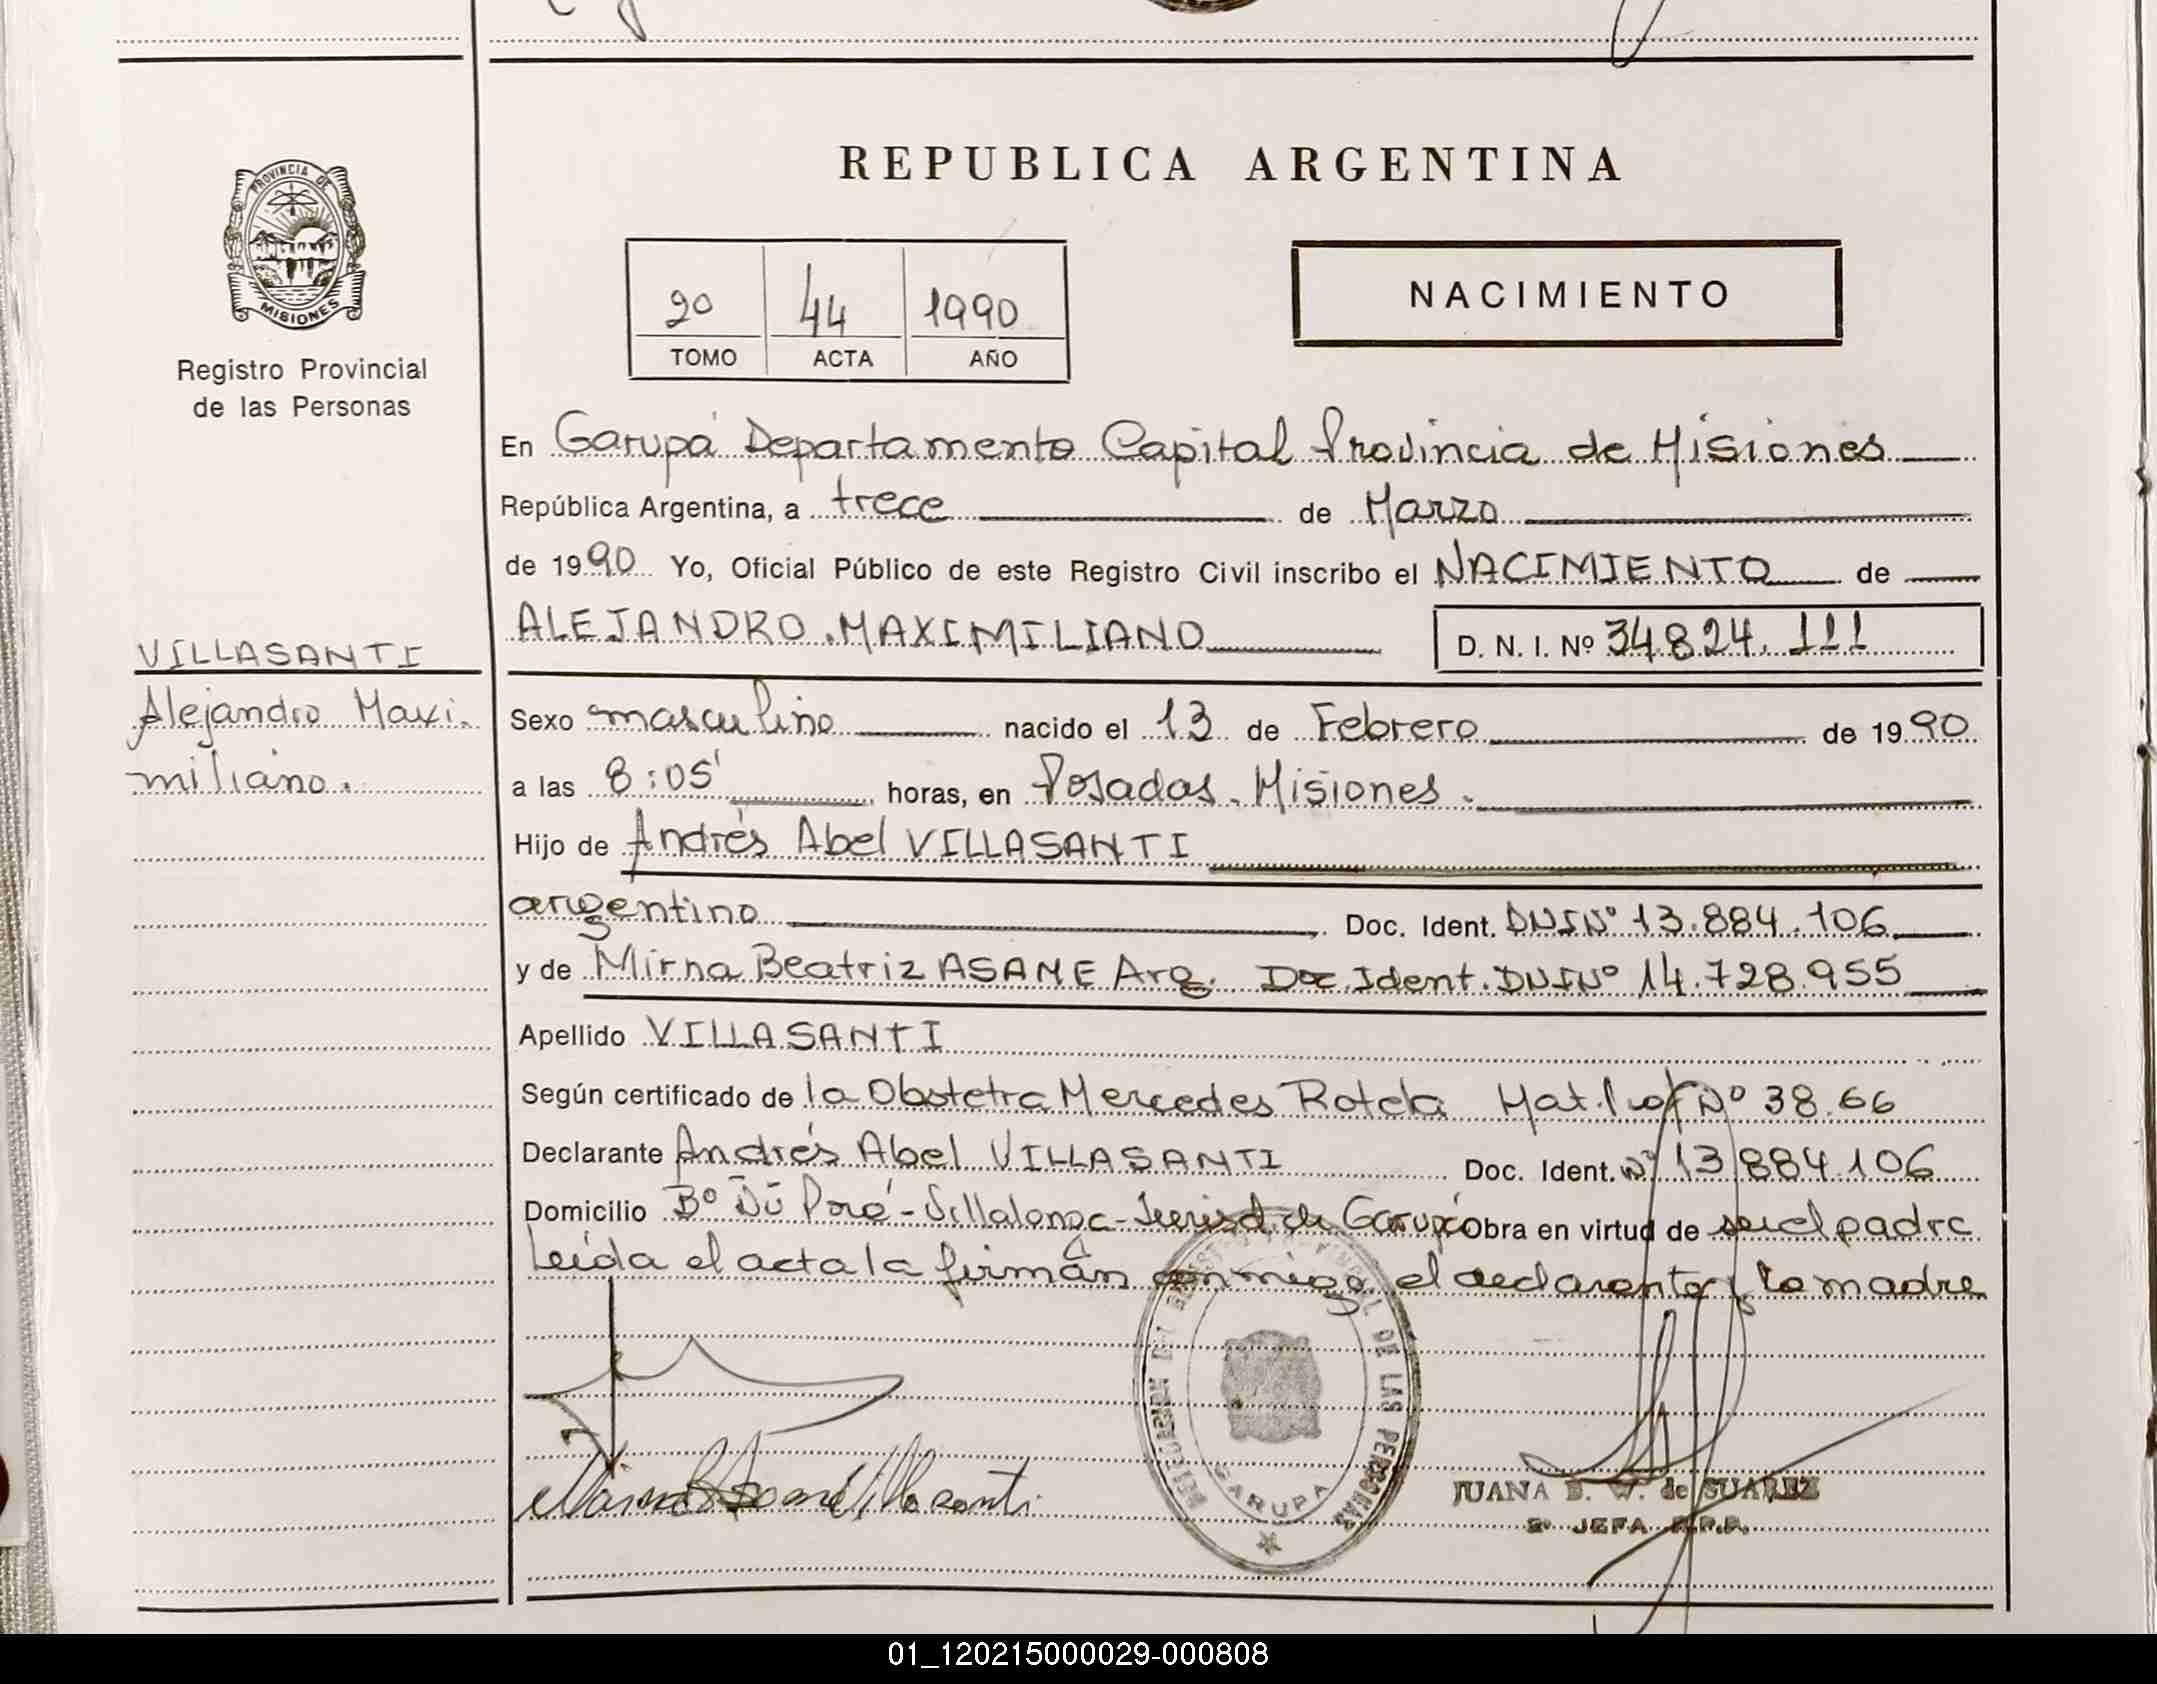 REPUBLICA ARGENTINA
PROVINCIA DE
MISIONES
Registro Provincial
de las Personas
20 44 1990
TOMO ACTA AÑO
NACIMIENTO
En Garupá Departamento Capital Provincia de Misiones
República Argentina, a trece de Marzo
de 1990 Yo, Oficial Público de este Registro Civil inscribo el NACIMIENTO de
ALEJANDRO MAXIMILIANO
D. N. I. Nº 34.824.111
VILLASANTI
Alejandro Maxi.
miliano.
Sexo masculino nacido el 13 de Febrero de 1990
a las 8:05' horas, en Posadas. Misiones.
Hijo de Andrés Abel VILLASANTI
argentino Doc. Ident. DNI Nº 13.884.106
y de Mirna Beatriz ASAME Arg. Doc Ident. DNI Nº 14.728.955
Apellido VILLASANTI
Según certificado de la Obstetra Mercedes Rotela Mat. Nº 38.66
Declarante Andrés Abel VILLASANTI Doc. Ident. Nº 13.884.106
Domicilio Bº Ñú Porá - Villalonga - de Garupá Obra en virtud de ser el padre
Leída el acta la firman conmigo el declarante y la madre
DEL REGISTRO PROVINCIAL DE LAS PERSONAS
GARUPA
JUANA W. de SUAREZ
JEFA R.P.P.
01_120215000029-000808